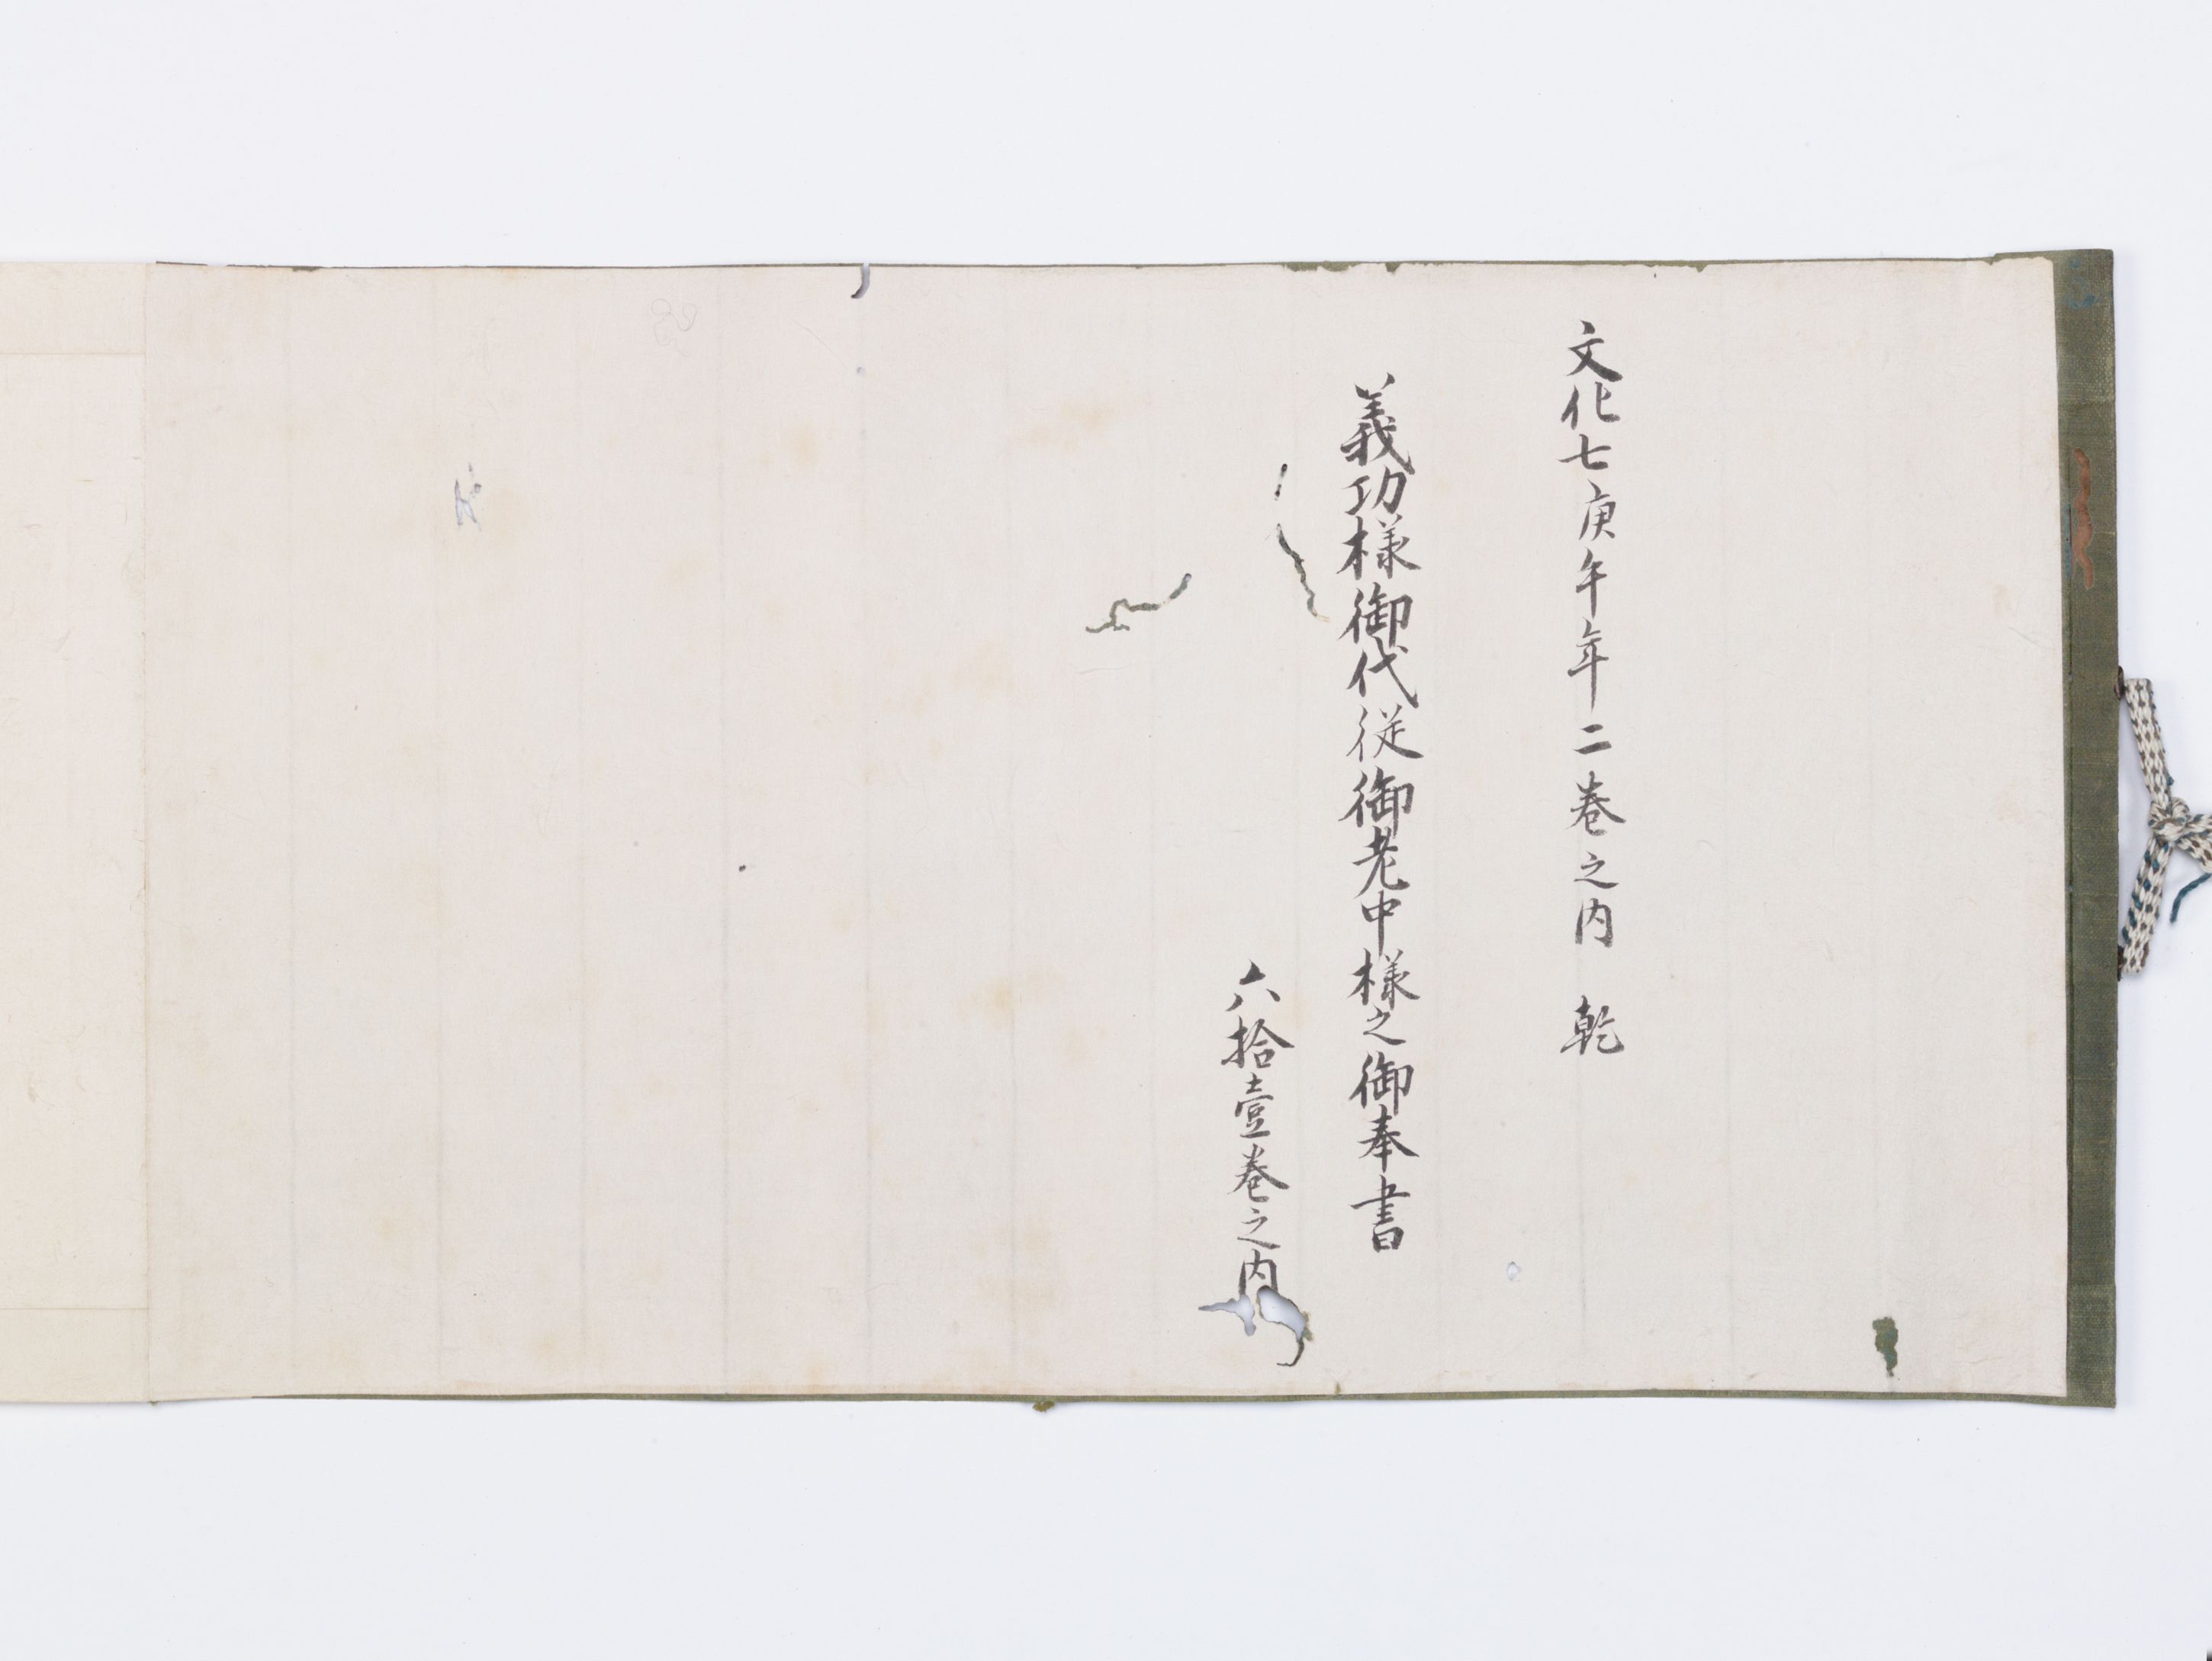 文化七庚午年二巻之内　乾
義功様御代従御老中様之御奉書
六拾壹巻之内